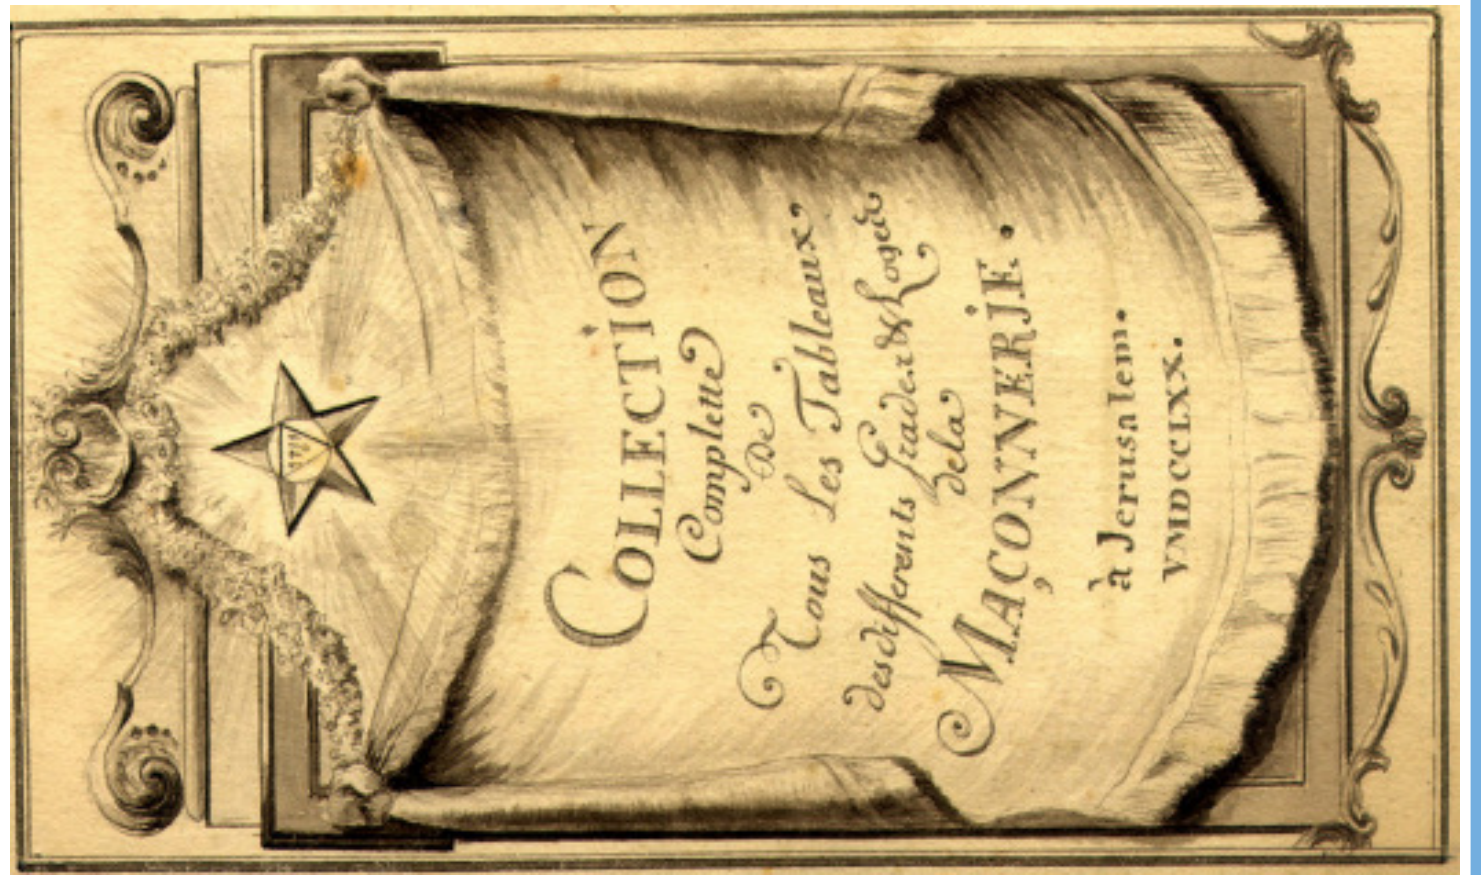 COLLECTION
Complette
De
Tous Les Tableaux
des differents Grades & Loges
dela
MAÇONNERIE.
à Jerusalem.
VMDCCLXX.